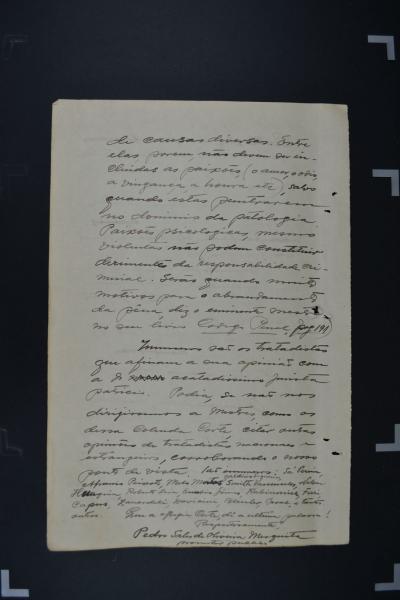 de causas diversas. Entre
ellas porem, não devem ser in-
cluidas as paixões (o amor, odio,
a vingança, a honra etc), salvo
quando estas penetrarem
no dominio da patologia.
Paixões psicologicas, mesmo
violentas não podem constituir
dirimentes da responsabilidade cri-
minal. Serão quando muito
motivos para o abrandamento
da pena, diz o eminente mestre
no seu livro Codigo Penal, pag 191
Innumeros são os tratadistas
que afinam a sua opinião com
a do acatadissimo jurista
patricio. Podia, se não nos
dirigissemos a Mestres, como os
dessa Colenda Corte citar outras
opiniões de tratadistas nacionaes e
estrangeiros, corroborando o nosso
ponto de vista. 
Afranio Peixoto, 
Capus,
outros. a ultima palavra!
Respeitosamente,
Pedro Sales de Oliveira Mesquita
promotor publico